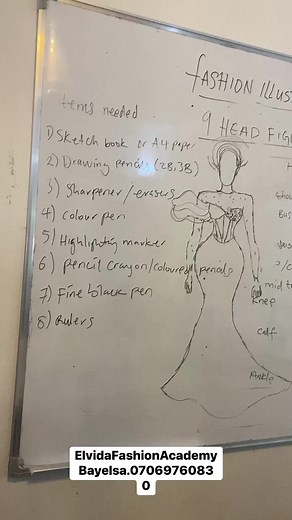 FASHION ILLUS
9 HEAD FIG
Items needed
1) Sketch book or A4 paper
2) Drawing pencils (2B,3B)
3) sharpener/erasers
4) Colour pen
5) Highlighting marker
6) pencil Crayon/coloured pencils
7) Fine black pen
8) Rulers
shou
Bus
mid t
Knee
Calf
Ankle
ElvidaFashionAcademy
Bayelsa.0706976083
0